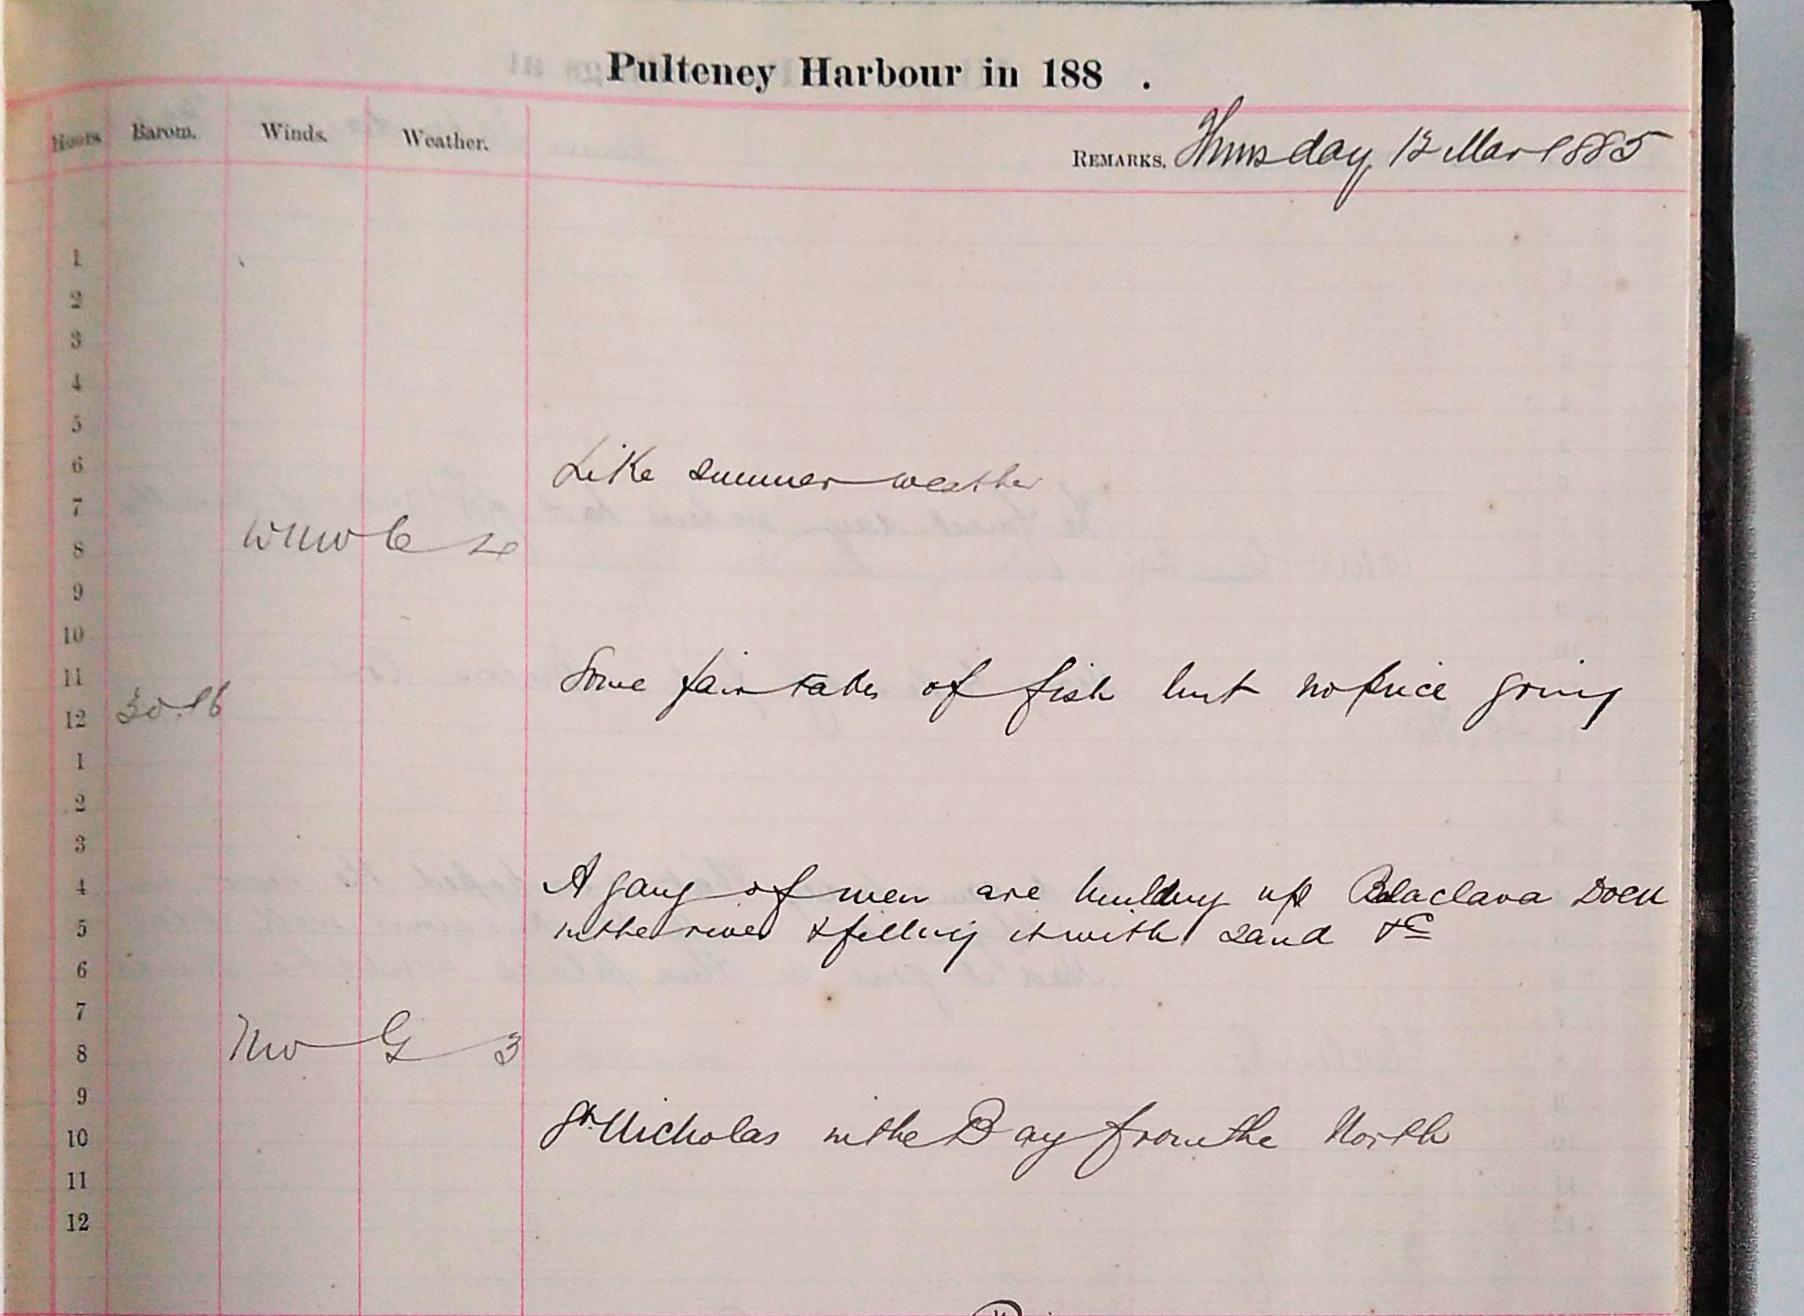 Pulteney Harbour in 188 .
Hours. Barom. Winds. Weather. REMARKS. Thursday 12 Mar 1885
1
2
3
4
5
6 Like summer weather
7
8 WNW C 4
9
10
11 Some fair takes of fish but no price going
12 30.16
1
2
3
4 A gang of men are building up Balaclava Dock
5 in the river & filling it with sand &c
6
7
8 NW G 3
9
10 St Nicholas in the Bay from the North
11
12